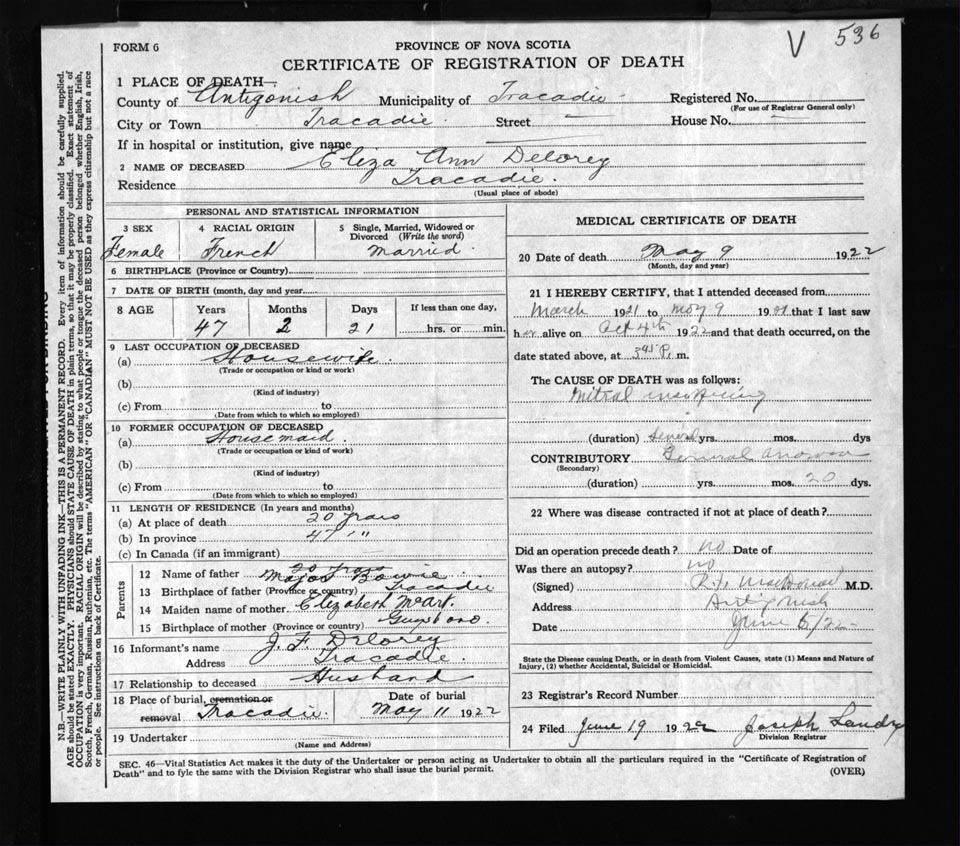 V 536
FORM 6
PROVINCE OF NOVA SCOTIA
CERTIFICATE OF REGISTRATION OF DEATH
1 PLACE OF DEATH—
County of Antigonish Municipality of Tracadie Registered No.
(For use of Registrar General only)
City or Town Tracadie Street — House No. —
If in hospital or institution, give name
2 NAME OF DECEASED Eliza Ann Delorey
Residence Tracadie.
(Usual place of abode)
PERSONAL AND STATISTICAL INFORMATION
3 SEX 4 RACIAL ORIGIN 5 Single, Married, Widowed or Divorced (Write the word)
Female French Married
6 BIRTHPLACE (Province or Country)
7 DATE OF BIRTH (month, day and year)
8 AGE Years Months Days If less than one day,
47 2 21 hrs. or min.
9 LAST OCCUPATION OF DECEASED
(a) Housewife.
(Trade or occupation or kind or work)
(b)
(Kind of industry)
(c) From to
(Date from which to which so employed)
10 FORMER OCCUPATION OF DECEASED
(a) Housemaid.
(Trade or occupation or kind of work)
(b)
(Kind of industry)
(c) From to
(Date from which to which so employed)
11 LENGTH OF RESIDENCE (In years and months)
(a) At place of death 20 years
(b) In province 47 " "
(c) In Canada (if an immigrant)
Parents
20 years
12 Name of father Major Bowie
13 Birthplace of father (Province or country) Tracadie
14 Maiden name of mother Elizabeth McArt.
15 Birthplace of mother (Province or country) Guysboro.
16 Informant's name J. F. Delorey
Address Tracadie.
17 Relationship to deceased Husband
18 Place of burial, cremation or removal Tracadie. Date of burial May 11 1922
19 Undertaker
(Name and Address)
MEDICAL CERTIFICATE OF DEATH
20 Date of death May 9 1922
(Month, day and year)
21 I HEREBY CERTIFY, that I attended deceased from
March 1921 to May 9 19 that I last saw
her alive on Oct 4th 1922 and that death occurred, on the
date stated above, at 3 P. m.
The CAUSE OF DEATH was as follows:
Mitral
(duration) several yrs. mos. dys
CONTRIBUTORY General
(Secondary)
(duration) yrs. mos. 20 dys.
22 Where was disease contracted if not at place of death?
Did an operation precede death? no Date of
Was there an autopsy? no
(Signed) MacDonald M.D.
Address Antigonish
Date June 6/22
State the Disease causing Death, or in death from Violent Causes, state (1) Means and Nature of
Injury, (2) whether Accidental, Suicidal or Homicidal.
23 Registrar's Record Number
24 Filed June 19 1922 Joseph Landry
Division Registrar
SEC. 46—Vital Statistics Act makes it the duty of the Undertaker or person acting as Undertaker to obtain all the particulars required in the "Certificate of Registration of
Death" and to fyle the same with the Division Registrar who shall issue the burial permit. (OVER)
N.B.—WRITE PLAINLY WITH UNFADING INK—THIS IS A PERMANENT RECORD. Every item of information should be carefully supplied.
AGE should be stated EXACTLY. PHYSICIANS should STATE CAUSE OF DEATH in plain terms, so that it may be properly classified. Exact statement of
OCCUPATION is very important. RACIAL ORIGIN will be described by stating to what people or tongue the deceased person belonged whether English, Irish,
Scotch, French, German, Russian, Ruthenian, etc. The terms "AMERICAN" OR "CANADIAN" MUST NOT BE USED as they express citizenship but not a race
or people. See instructions on back of Certificate.